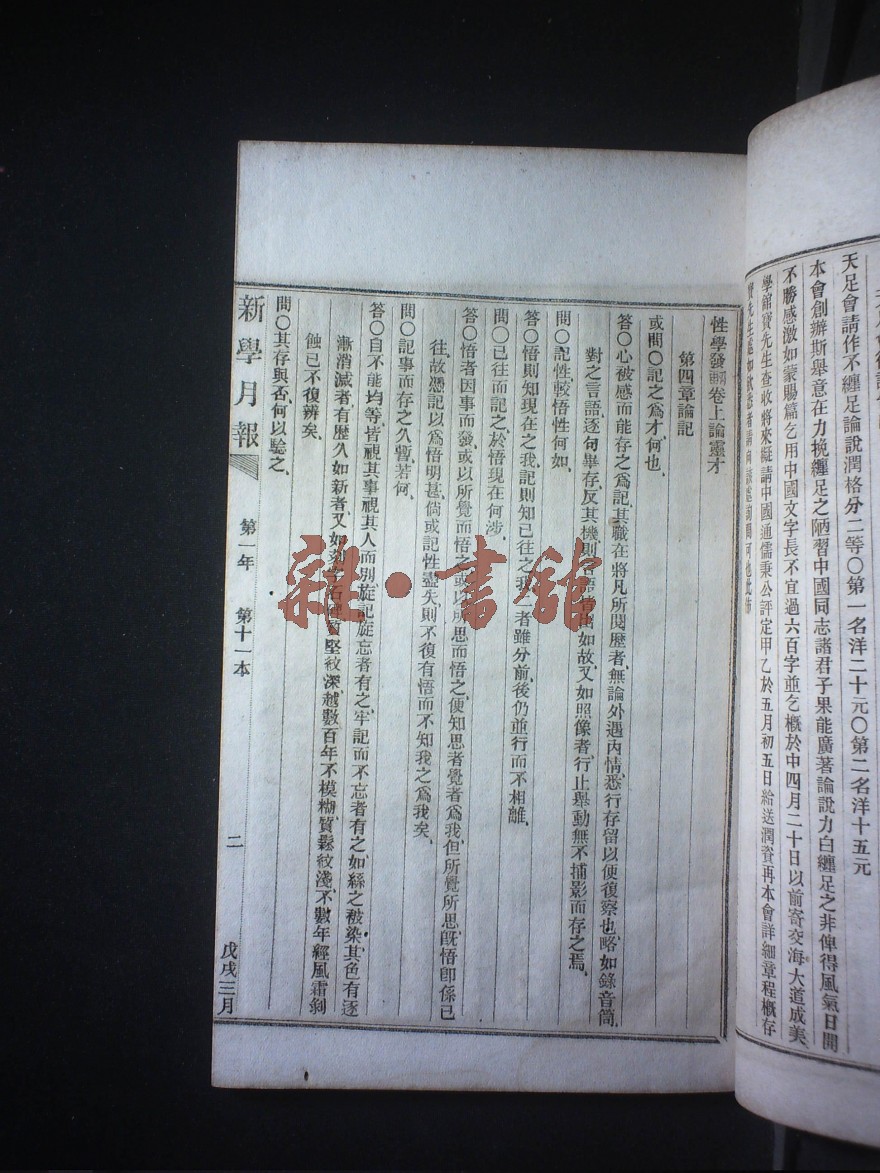 天足會請作不纏足論說潤格分二等〇第一名洋二十元〇第二名洋十五元
本會創辦斯舉意在力挽纏足之陋習中國同志諸君子果能廣著論說力白纏足之非俾得風氣日開
不勝感激如蒙賜篇乞用中國文字長不宜過六百字並乞概於中四月二十日以前寄交海大道成美
學館寶先生查收將來擬請中國通儒秉公評定甲乙於五月初五日給送潤資再本會詳細章程概存
性學發軔卷上論靈才
第四章論記
或問〇記之爲才何也、
答〇心被感而能存之爲記、其職在將凡所閱歷者、無論外遇內情、悉行存留以便復察也、略如錄音筒、
對之言語、逐句畢存、反其機則各語皆出如故、又如照像者、行止舉動無不捕影而存之焉、
問〇記性較悟性何如、
答〇悟則知現在之我、記則知已往之我、二者雖分前後仍並行而不相離、
問〇已往而記之、於悟現在何涉、
答〇悟者因事而發、或以所覺而悟之、或以所思而悟之、便知思者覺者爲我、但所覺所思、旣悟卽係已
往、故憑記以爲悟明甚、倘或記性盡失、則不復有悟而不知我之爲我矣、
問〇記事而存之久暫若何、
答〇自不能均等、皆視其事視其人而別、旋記旋忘者有之、牢記而不忘者有之、如絲之被染、其色有逐
漸消滅者、有歷久如新者、又如刻字石碑、質堅紋深、越數百年不模糊、質鬆紋淺、不數年經風霜剝
蝕、已不復辨矣、
問〇其存與否、何以驗之、
新學月報 第一年 第十一本 二 戊戌三月
雜·書館